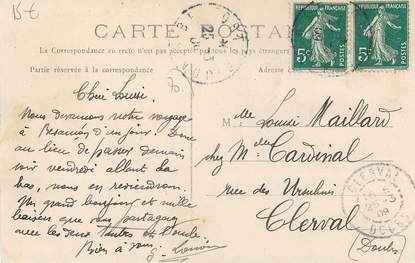 15€
CARTE POSTALE
La Correspondance au recto n'est pas acceptée par tous les pays étrangers
Partie réservée à la correspondance
5c POSTES
5c POSTES
Chère Louise.
Nous devançons notre voyage
à Besançon d'un jour. Donc
au lieu de passer demain
voir vendredi allant là
bas, nous en reviendrons.
Un grand bonjour et mille
baisers que tu partageras
avec les deux tantes et l'oncle.
Bien à vous.
Melle Louise Maillard
chez Melle Cardinal
rue des Ursulines
Clerval
(Doubs)
CLERVAL
09
DOUBS